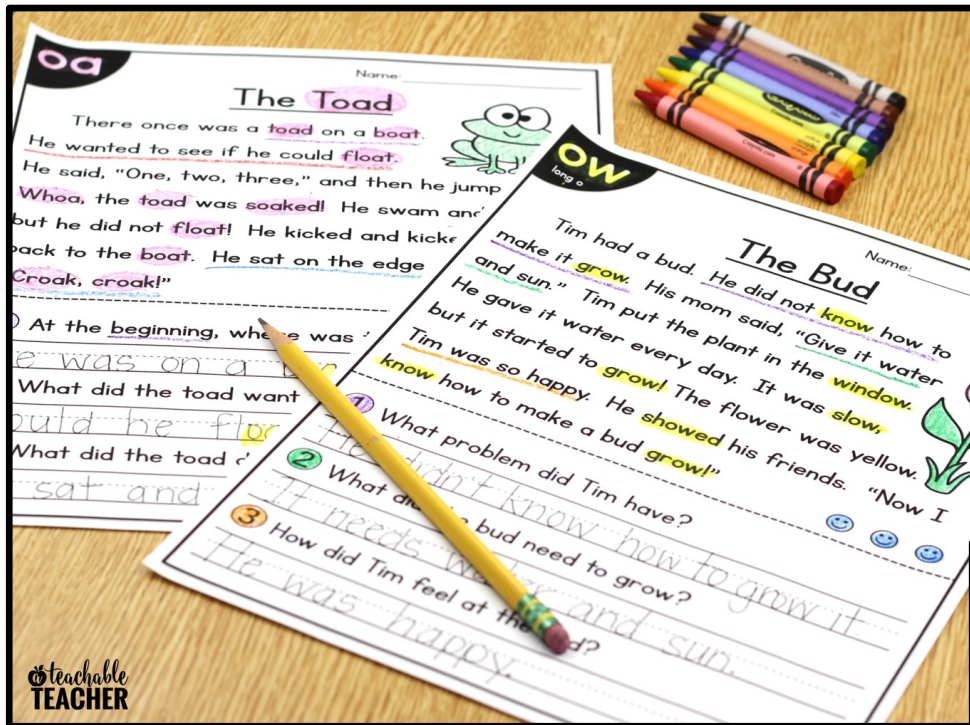 oa
Name:
The Toad
There once was a toad on a boat.
He wanted to see if he could float.
He said, "One, two, three," and then he jump
Whoa, the toad was soaked! He swam and
but he did not float! He kicked and kicke
back to the boat. He sat on the edge
Croak, croak!"
At the beginning, where was
e was on a
What did the toad want
ould he
What did the toad
sat and
ow
long o
Name:
The Bud
Tim had a bud. He did not know how to
make it grow. His mom said, "Give it water
and sun." Tim put the plant in the window.
He gave it water every day. It was slow,
but it started to grow! The flower was yellow.
Tim was so happy. He showed his friends. "Now I
know how to make a bud grow!"
1 What problem did Tim have?
He didn't know how to grow it.
2 What did the bud need to grow?
It needs water and sun.
3 How did Tim feel at the end?
He was happy.
Crayola
teachable
TEACHER